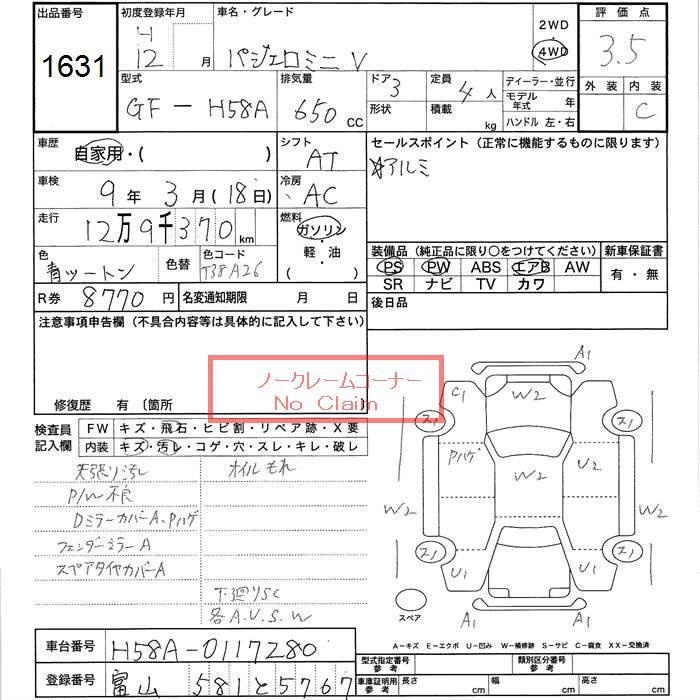 出品番号
1631
初度登録年月
12 月
車名・グレード
パジェロミニ V
2WD
4WD
評価点
3.5
型式
GF-H58A
排気量
650 CC
ドア
3
形状
定員
4人
積載
kg
ディーラー・並行
モデル年式 年
ハンドル 左・右
外装
内装
C
車歴
自家用・( )
シフト
AT
セールスポイント (正常に機能するものに限ります)
アルミ
車検
9年 3月(18日)
冷房
AC
走行
12万9千370 km
燃料
ガソリン・軽・油
( )
色
青ツートン
色替
色コード
T38A26
装備品 (純正品に限り〇をつけてください)
新車保証書
PS PW ABS エアB AW
SR ナビ TV カワ
有・無
R券 8770 円
名変通知期限 月 日
後日品
注意事項申告欄 (不具合内容等は具体的に記入して下さい)
ノークレームコーナー
No Claim
修復歴 有 〔箇所
検査員記入欄
FW キズ・飛石・ヒビ割・リペア跡・X要
内装 キズ・汚レ・コゲ・穴・スレ・キレ・破レ
天張り汚レ
オイルもれ
P/W不良
DミラーカバーA、Pハゲ
フェンダーミラーA
スペアタイヤカバーA
下廻りSC
各A.U.S.W
A1
C1
W2
ス1
ス1
Pハゲ
W2
U2
W2
W2
ス1
ス1
U1
U1
スペア
A1
A1
A-キズ E-エクボ U-凹み W-補修跡 S-サビ C-腐食 XX-交換済
車台番号
H58A-0117280
登録番号
富山 581と5767
型式指定番号
参考
類別区分番号
参考
車庫証明用
参考
長さ cm
幅 cm
高さ cm